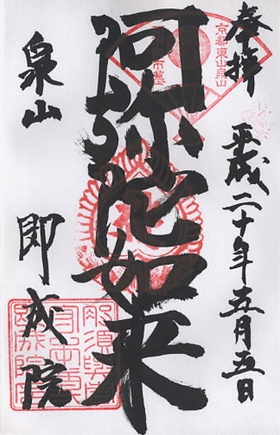 奉拝
平成二十年五月五日
京都東山泉山
阿弥陀如来
泉山
即成院